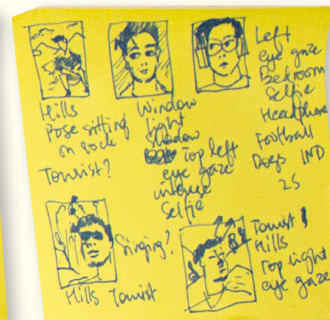 Hills
Pose sitting
on rock
Tourist?
Window
light
shadow
Top left
eye gaze
intense
Selfie
Left
eye gaze
Bedroom
Selfie
Headphone
Football
Dogs IND
25
Singing?
Hills Tourist
Tourist!
Hills
Top right
eye gaze